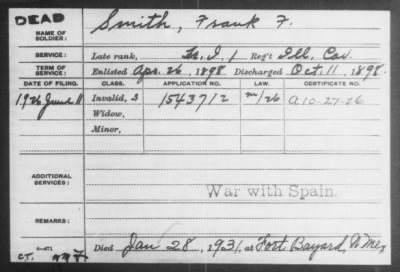 DEAD
NAME OF SOLDIER: Smith, Frank F.
SERVICE: Late rank, Tr. I, 1 Reg't Ill. Cav.
TERM OF SERVICE: Enlisted Apr. 26, 1898. Discharged Oct. 11, 1898.
DATE OF FILING. CLASS. APPLICATION NO. LAW. CERTIFICATE NO.
1926 June 11 Invalid, 1543712 A 10-27-26
Widow,
Minor,
ADDITIONAL SERVICES:
War with Spain.
REMARKS:
Died Jan 28, 1931, at Fort Bayard, N. Mex.